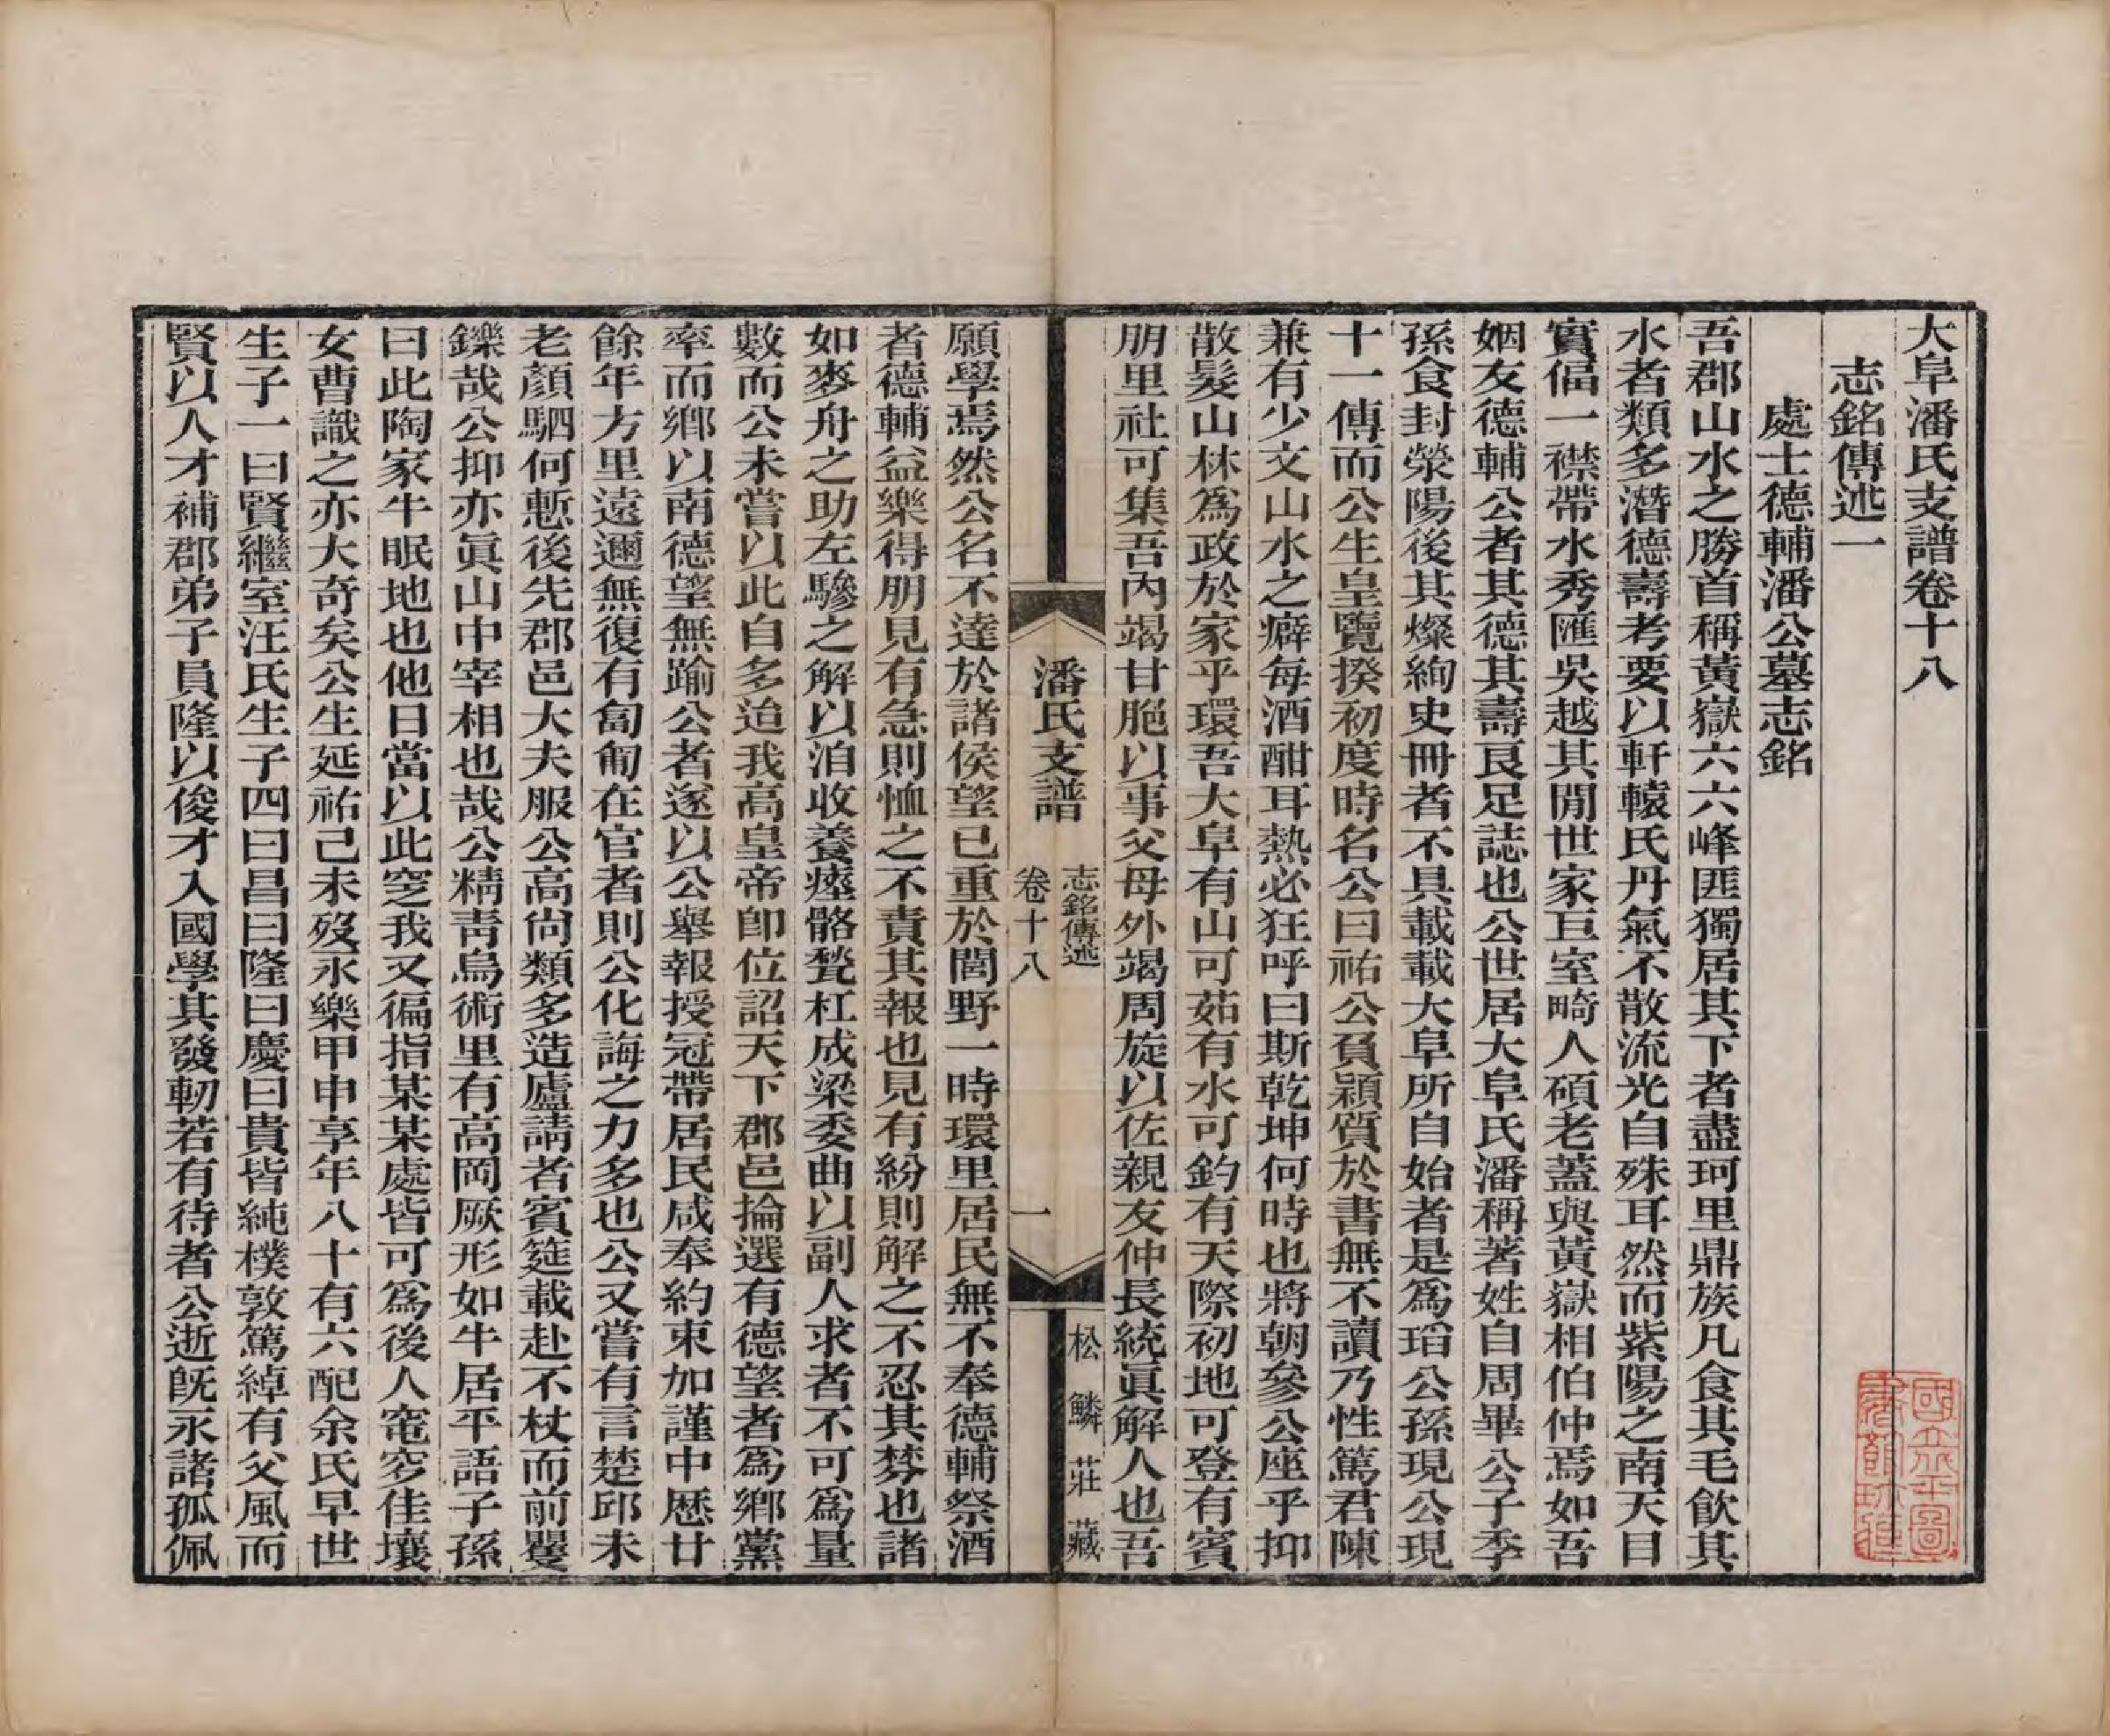 大阜潘氏支譜卷十八
志銘傳述一
處士德輔潘公墓志銘
吾郡山水之勝首稱黃嶽六六峰匪獨居其下者盡珂里鼎族凡食其毛飲其
水者類多潛德壽考要以軒轅氏丹氣不散流光自殊耳然而紫陽之南天目
實偪一襟帶水秀匯吳越其閒世家巨室畸人碩老蓋與黃嶽相伯仲焉如吾
姻友德輔公者其德其壽良足誌也公世居大阜氏潘稱著姓自周畢公子季
孫食封滎陽後其燦絢史冊者不具載載大阜所自始者是爲瑫公孫現公現
十一傳而公生皇覽揆初度時名公曰祐公負穎質於書無不讀乃性篤君陳
兼有少文山水之癖每酒酣耳熱必狂呼曰斯乾坤何時也將朝參公座乎抑
散髮山林爲政於家乎環吾大阜有山可茹有水可釣有天際初地可登有賓
朋里社可集吾內竭甘脃以事父母外竭周旋以佐親友仲長統眞解人也吾
潘氏支譜
志銘傳述
卷十八
一
松鱗莊藏
願學焉然公名不達於諸侯望已重於閭野一時環里居民無不奉德輔祭酒
者德輔益樂得朋見有急則恤之不責其報也見有紛則解之不忍其棼也諸
如麥舟之助左驂之解以洎收養瘞骼甃杠成梁委曲以副人求者不可爲量
數而公未嘗以此自多迨我高皇帝卽位詔天下郡邑掄選有德望者爲鄉黨
率而鄉以南德望無踰公者遂以公舉報授冠帶居民咸奉約束加謹中歷廿
餘年方里遠邇無復有匍匐在官者則公化誨之力多也公又嘗有言楚邱未
老顏駟何慙後先郡邑大夫服公高尙類多造廬請者賓筵載赴不杖而前矍
鑠哉公抑亦眞山中宰相也哉公精靑烏術里有高岡厥形如牛居平語子孫
曰此陶家牛眠地也他日當以此窆我又徧指某某處皆可爲後人窀穸佳壤
女曹識之亦大奇矣公生延祐己未歿永樂甲申享年八十有六配余氏早世
生子一曰賢繼室汪氏生子四曰昌曰隆曰慶曰貴皆純樸敦篤綽有父風而
賢以人才補郡弟子員隆以俊才入國學其發軔若有待者公逝旣永諸孤佩